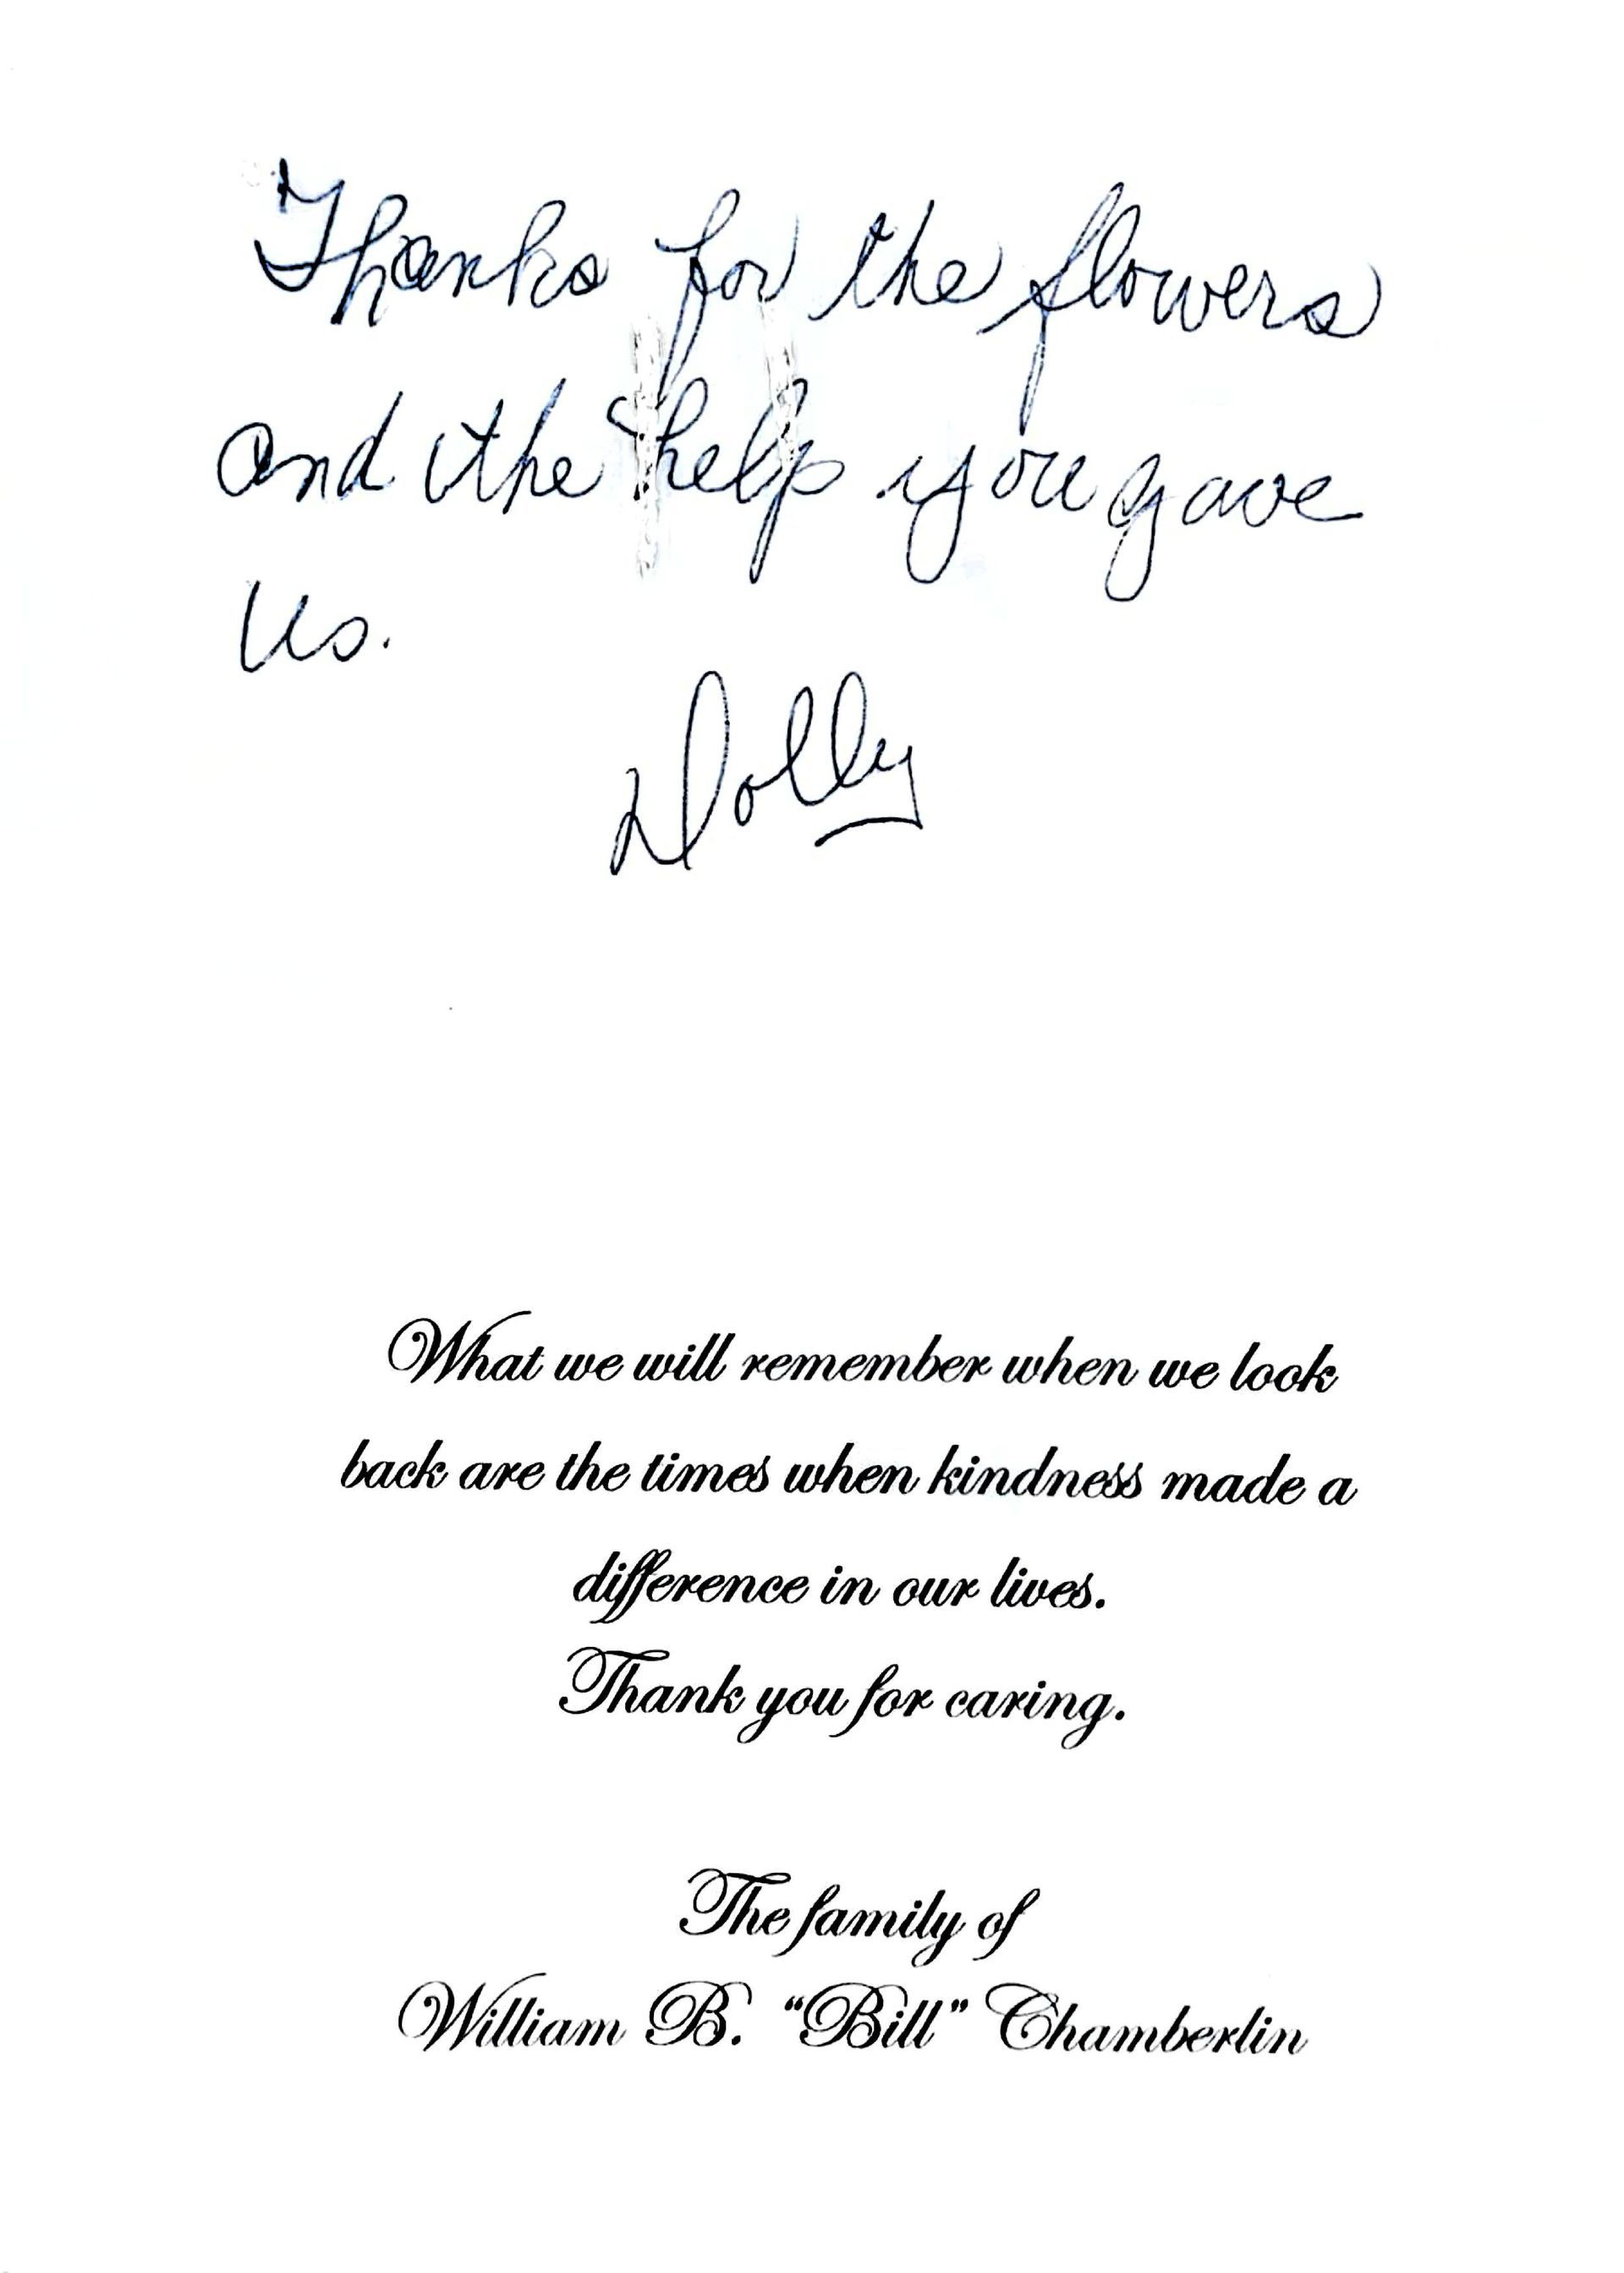 Thanks for the flowers
and the help you gave
us.
Dolly
What we will remember when we look
back are the times when kindness made a
difference in our lives.
Thank you for caring.
The family of
William B. “Bill” Chamberlin